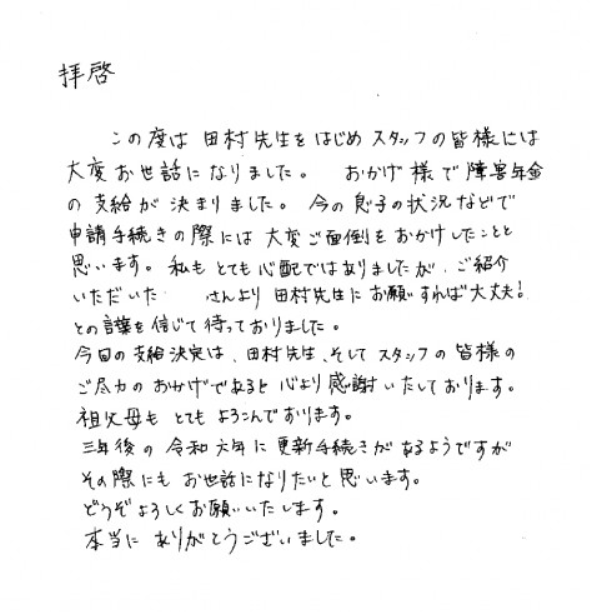 拝啓
この度は 田村先生をはじめ スタッフの皆様には
大変お世話になりました。 おかげ様で障害年金
の支給が 決まりました。今の息子の状況などで
申請手続きの際には 大変ご面倒をおかけしたことと
思います。私も とても心配ではありましたが、ご紹介
いただいた さんより 田村先生に お願いすれば大丈夫!
との言葉を信じて待っておりました。
今回の支給決定は、田村先生、そして スタッフの皆様の
ご尽力の おかげであると 心より感謝いたしております。
祖父母も とても よろこんでおります。
三年後の 令和六年に更新手続きが あるようですが
その際にも お世話になりたいと思います。
どうぞよろしくお願いいたします。
本当に ありがとうございました。